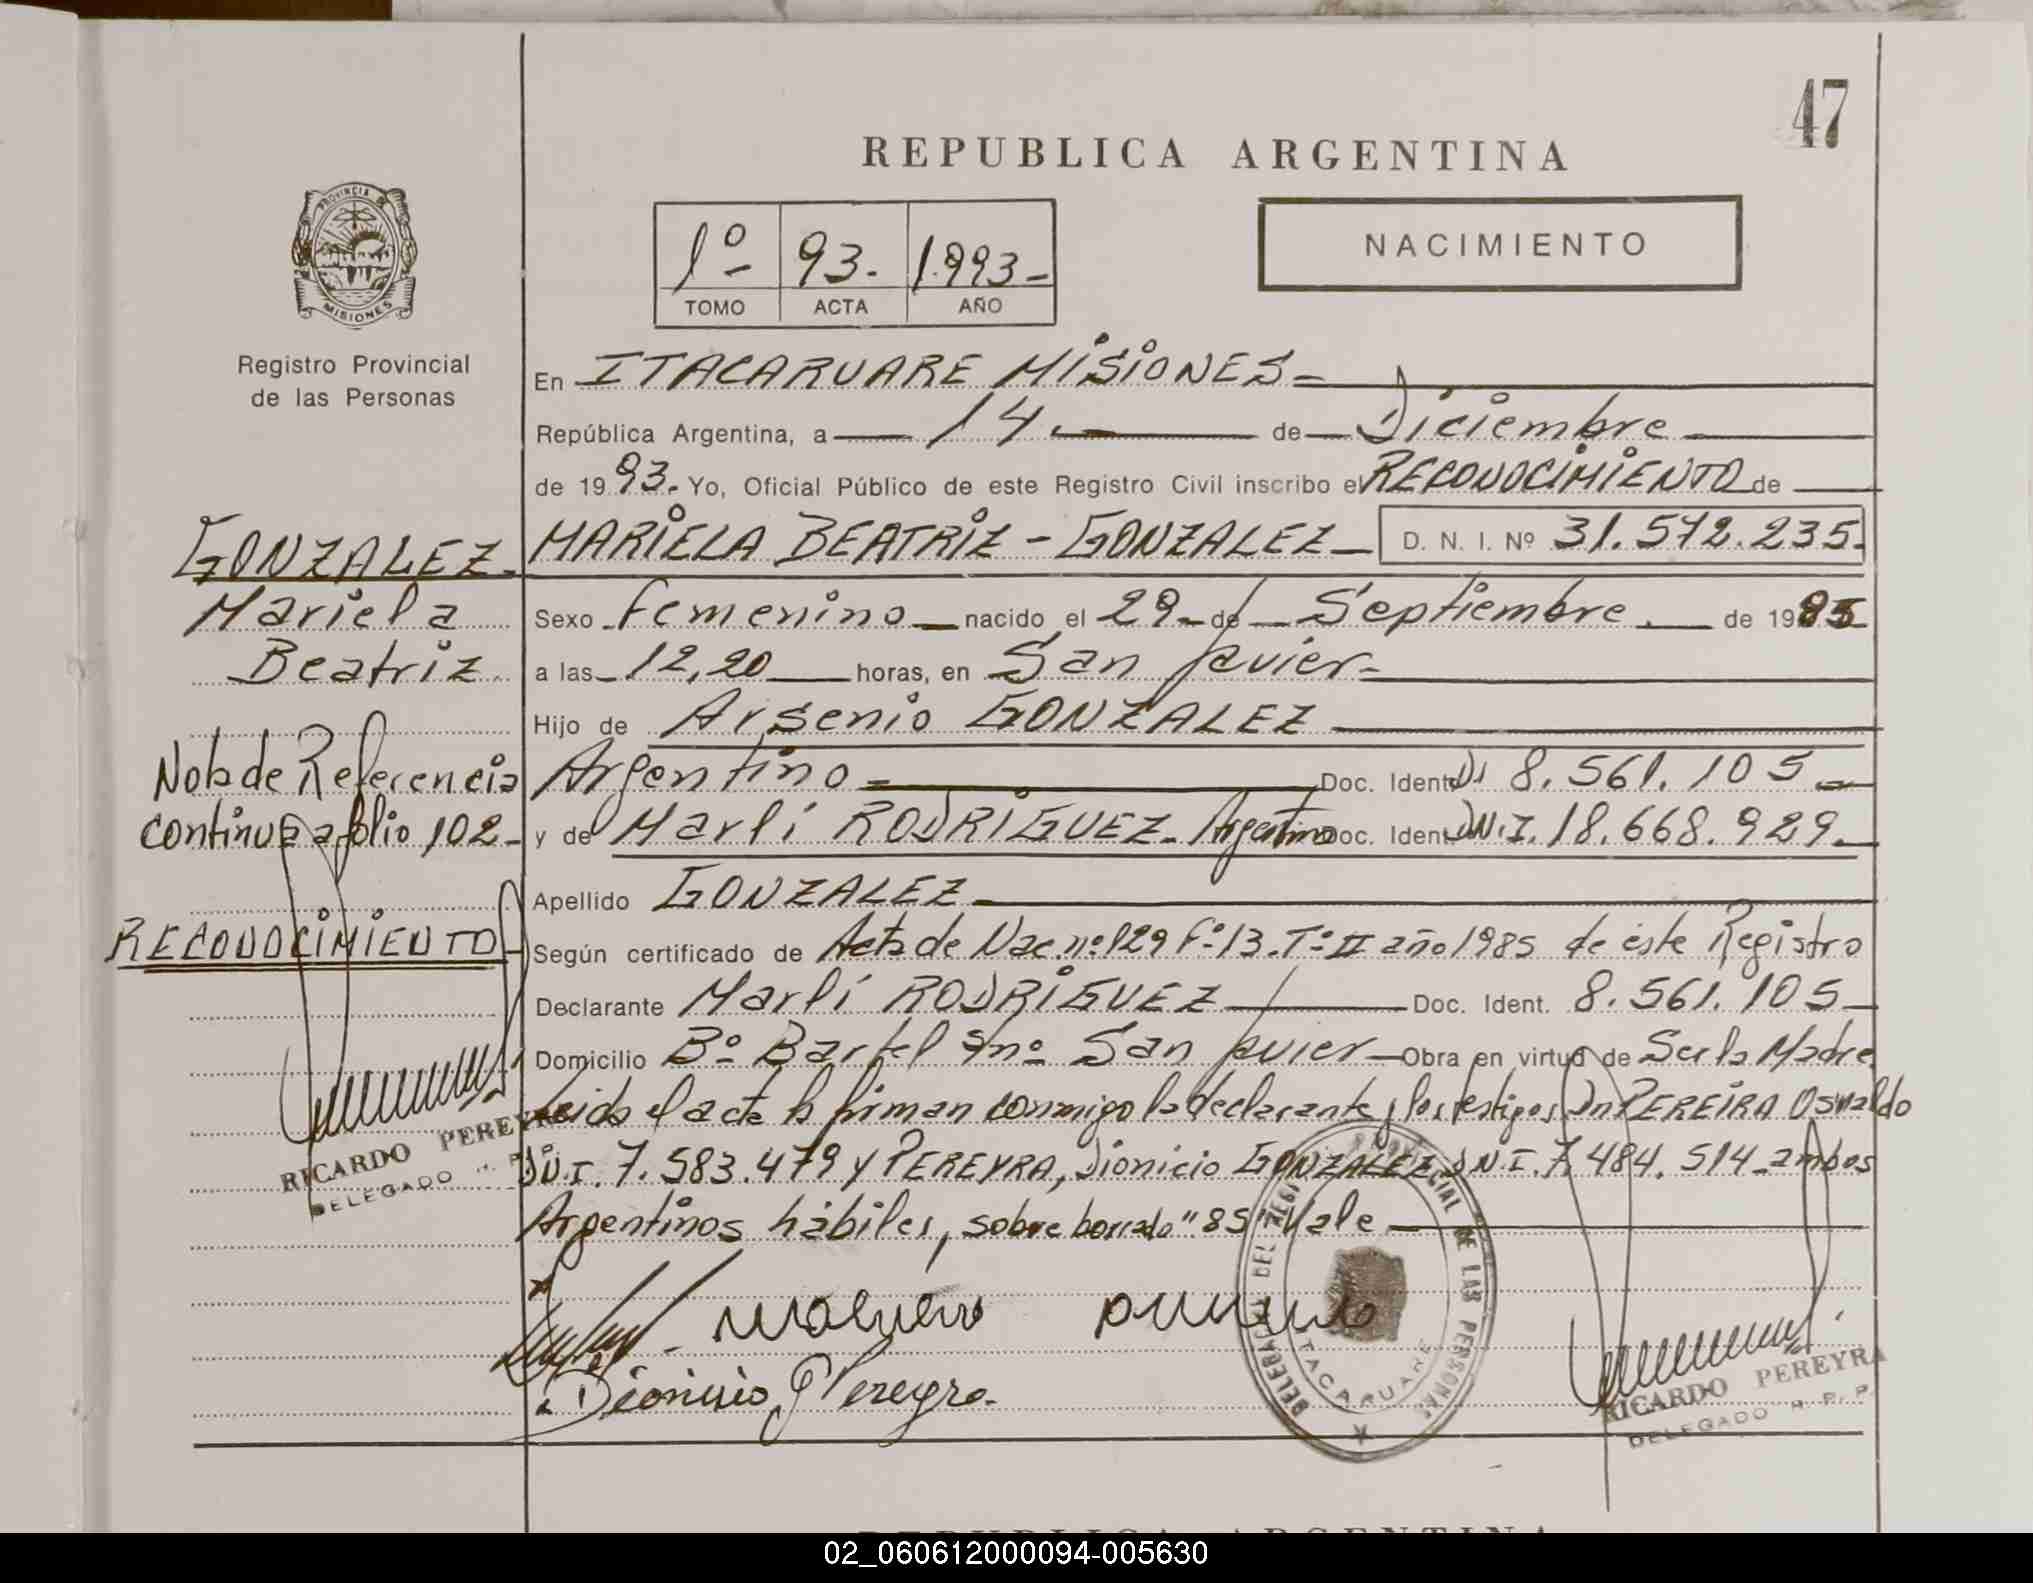 47
REPUBLICA ARGENTINA
PROVINCIA DE
MISIONES
Registro Provincial
de las Personas
1º 93. 1.993
TOMO ACTA AÑO
NACIMIENTO
En ITACARUARE MISIONES
República Argentina, a 14 de Diciembre
de 1993. Yo, Oficial Público de este Registro Civil inscribo el RECONOCIMIENTO de
MARIELA BEATRIZ - GONZALEZ D. N. I. Nº 31.572.235
Sexo Femenino nacido el 29 de Septiembre de 1985
a las 12,20 horas, en San Javier
Hijo de Arsenio GONZALEZ
Argentino Doc. Ident. DI 8.561.105
y de Marlí RODRIGUEZ Argentina Doc. Ident. DN.I. 18.668.929
Apellido GONZALEZ
Según certificado de Acta de Nac. nº 129 Fº 13. Tº II año 1985 de éste Registro
Declarante Marlí RODRIGUEZ Doc. Ident. 8.561.105
Domicilio Bº Bartel S/nº San Javier Obra en virtud de Ser la Madre
Leida el acta la firman conmigo la declarante y los testigos Dn PEREIRA Osvaldo
DN.I. 7.583.479 y PEREYRA, Dionicio GONZALEZ DN.I. 7.484.514 ambos
Argentinos hábiles, sobre borrado "85" Vale
Dionicio G Pereyra
GONZALEZ
Mariela
Beatriz
Nota de Referencia
continua a folio 102
RECONOCIMIENTO
RICARDO PEREYRA
DELEGADO R. P. P.
DELEGACION DEL REGISTRO PROVINCIAL DE LAS PERSONAS
ITACARUARE
RICARDO PEREYRA
DELEGADO R. P. P.
REPUBLICA ARGENTINA
02_060612000094-005630